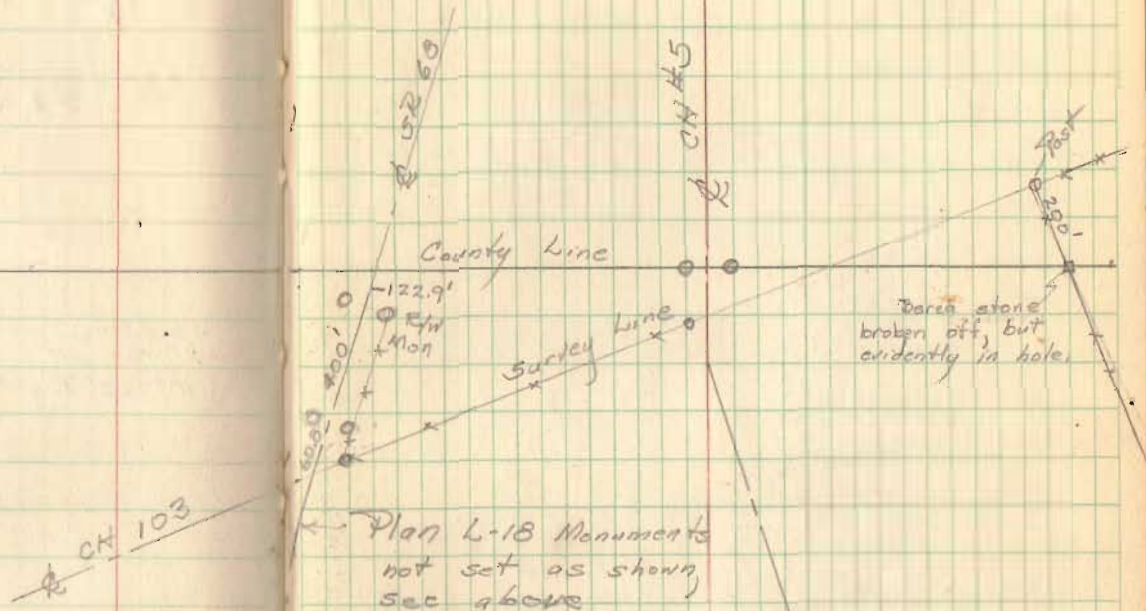 ℄ SR 63
CH #5
℄
Post
290'
County Line
122.9'
R/W
Mon
400'
Survey Line
stone
broken off, but
evidently in hole.
60.00'
℄ CH 103
Plan L-18 Monuments
not set as shown,
see above